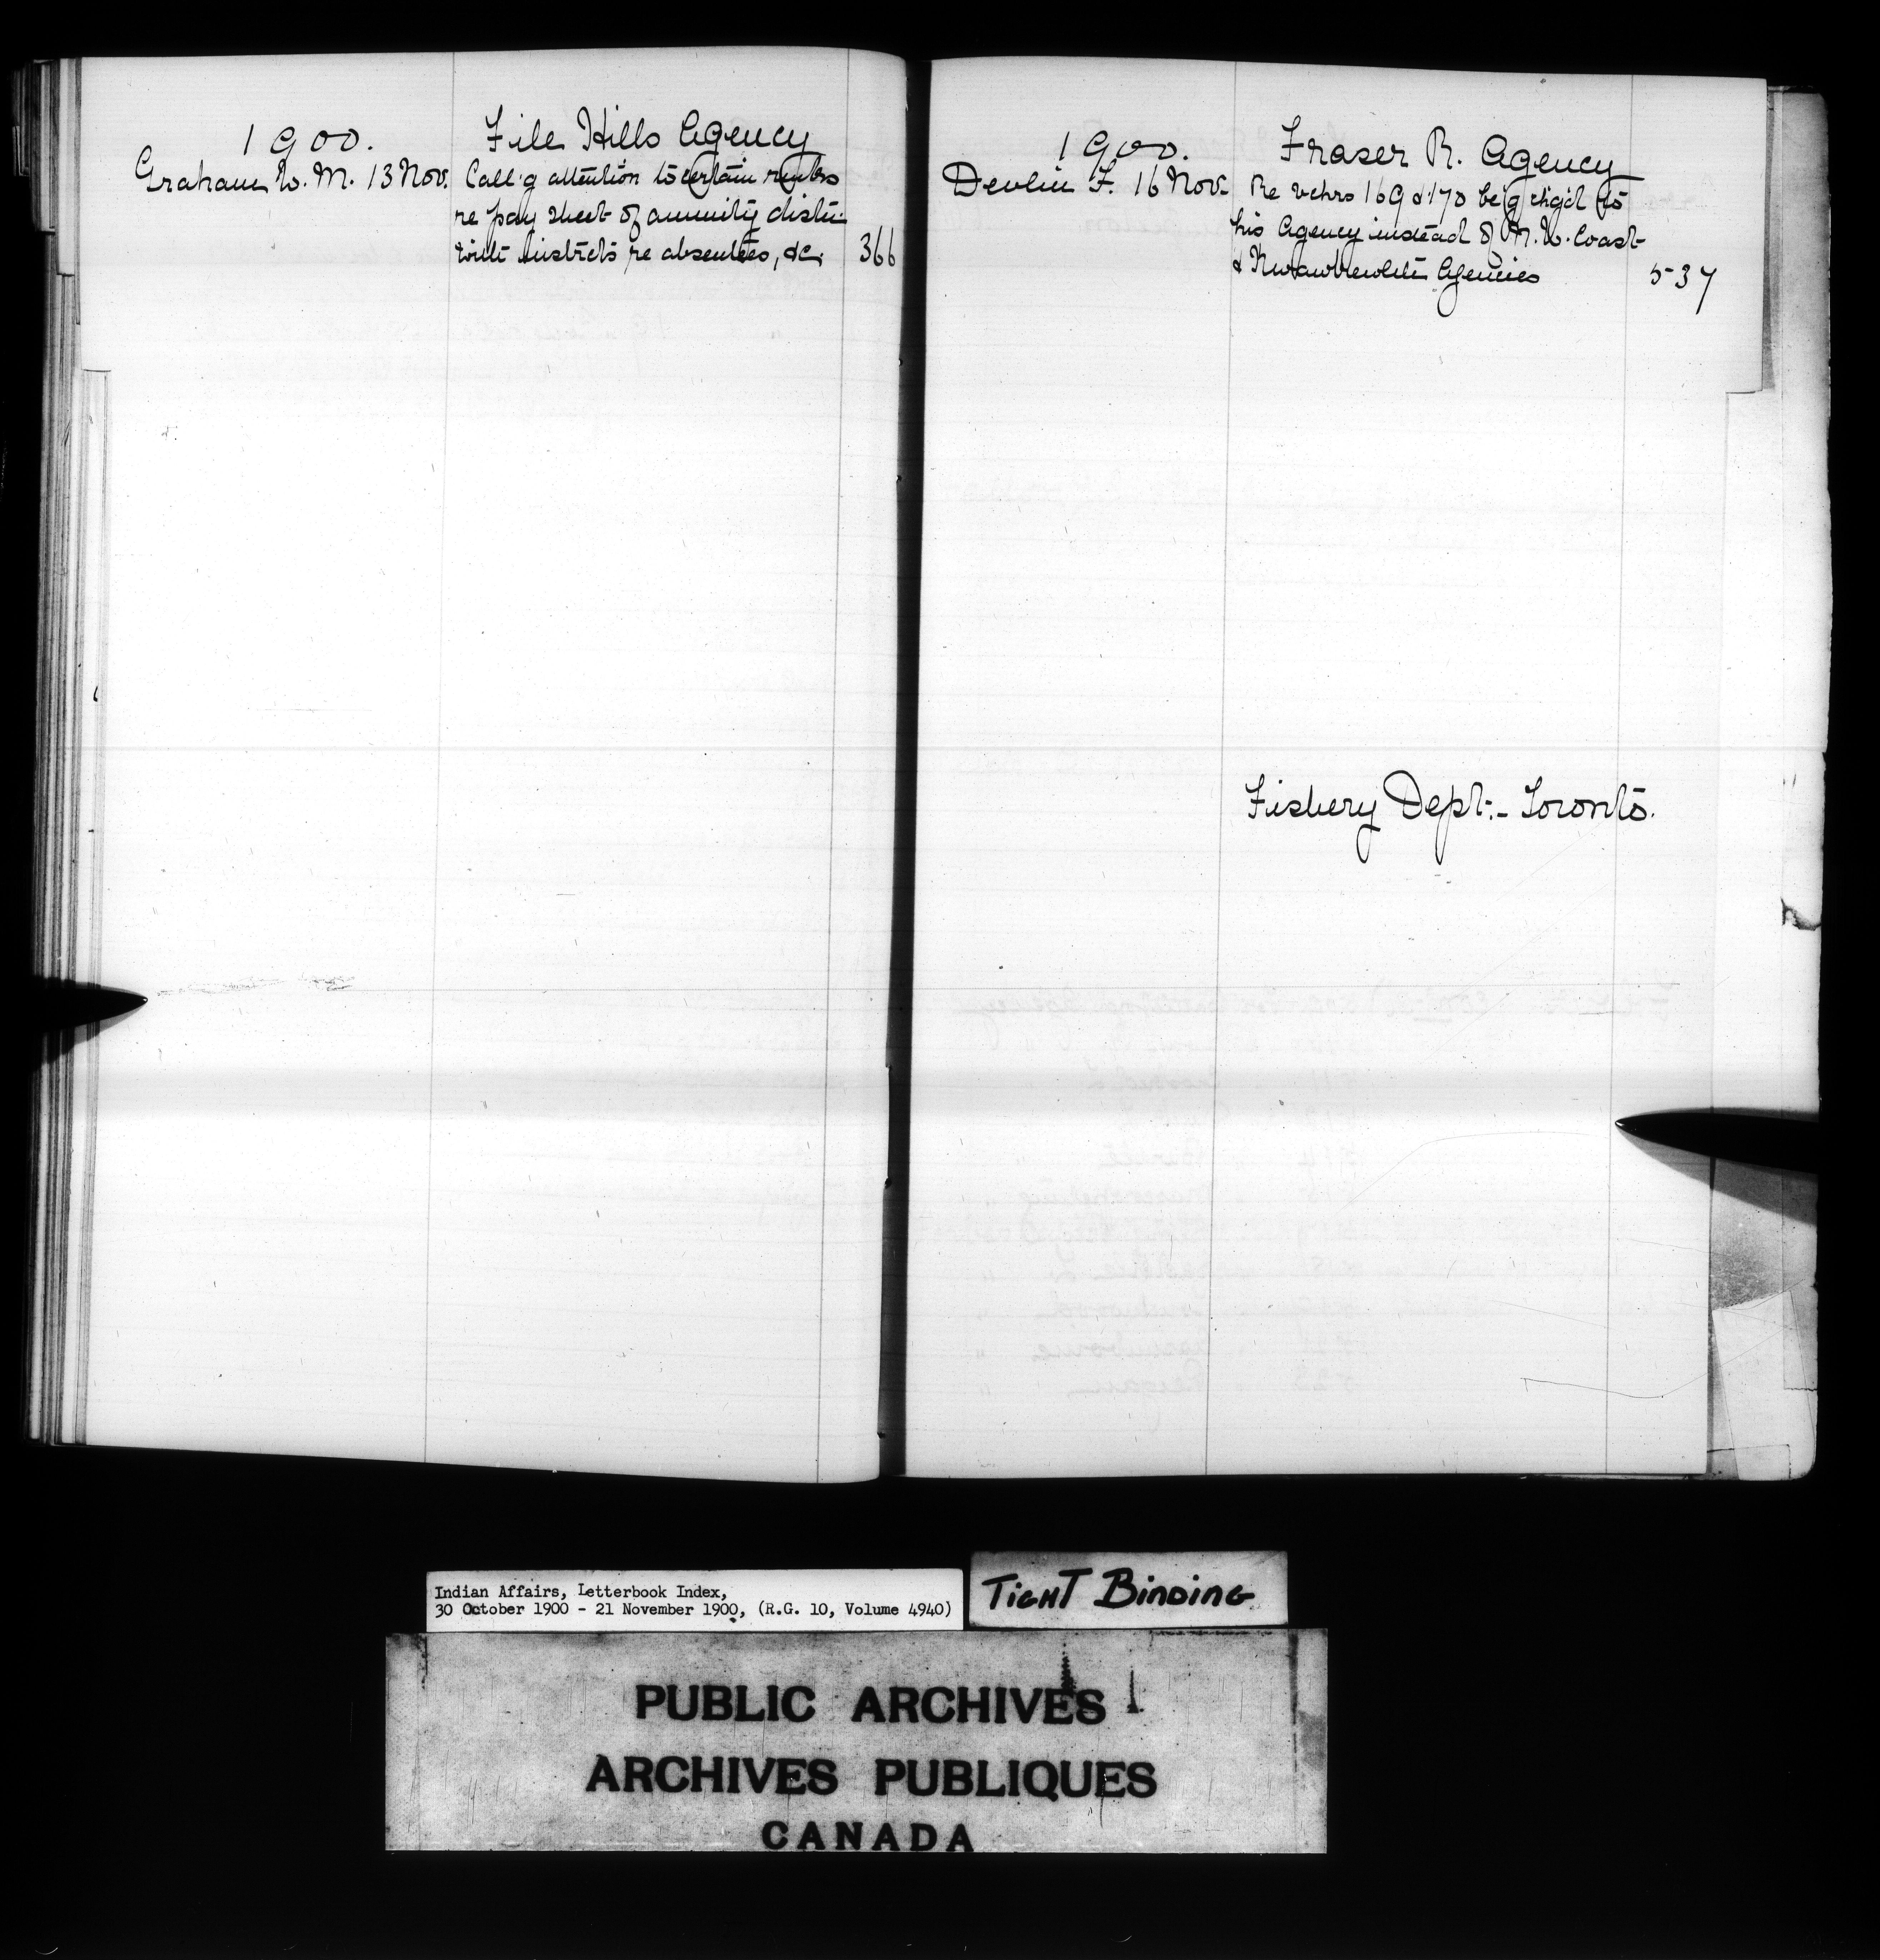 1900. File Hills Agency
Graham W. M. 13 Nov. Call'g attention to certain
re pay sheet of annuity distri-
with instrcts re absentees, &c. 366
1900. Fraser R. Agency
Devlin F. 16 Nov. Re vchrs 169 & 170 be'g chg'd to
his Agency instead of N. W. Coast
& Kwawkewlth Agencies 537
Fishery Dept:- Toronto.
Indian Affairs, Letterbook Index,
30 October 1900 - 21 November 1900, (R.G. 10, Volume 4940)
TIGHT BINDING
PUBLIC ARCHIVES
ARCHIVES PUBLIQUES
CANADA